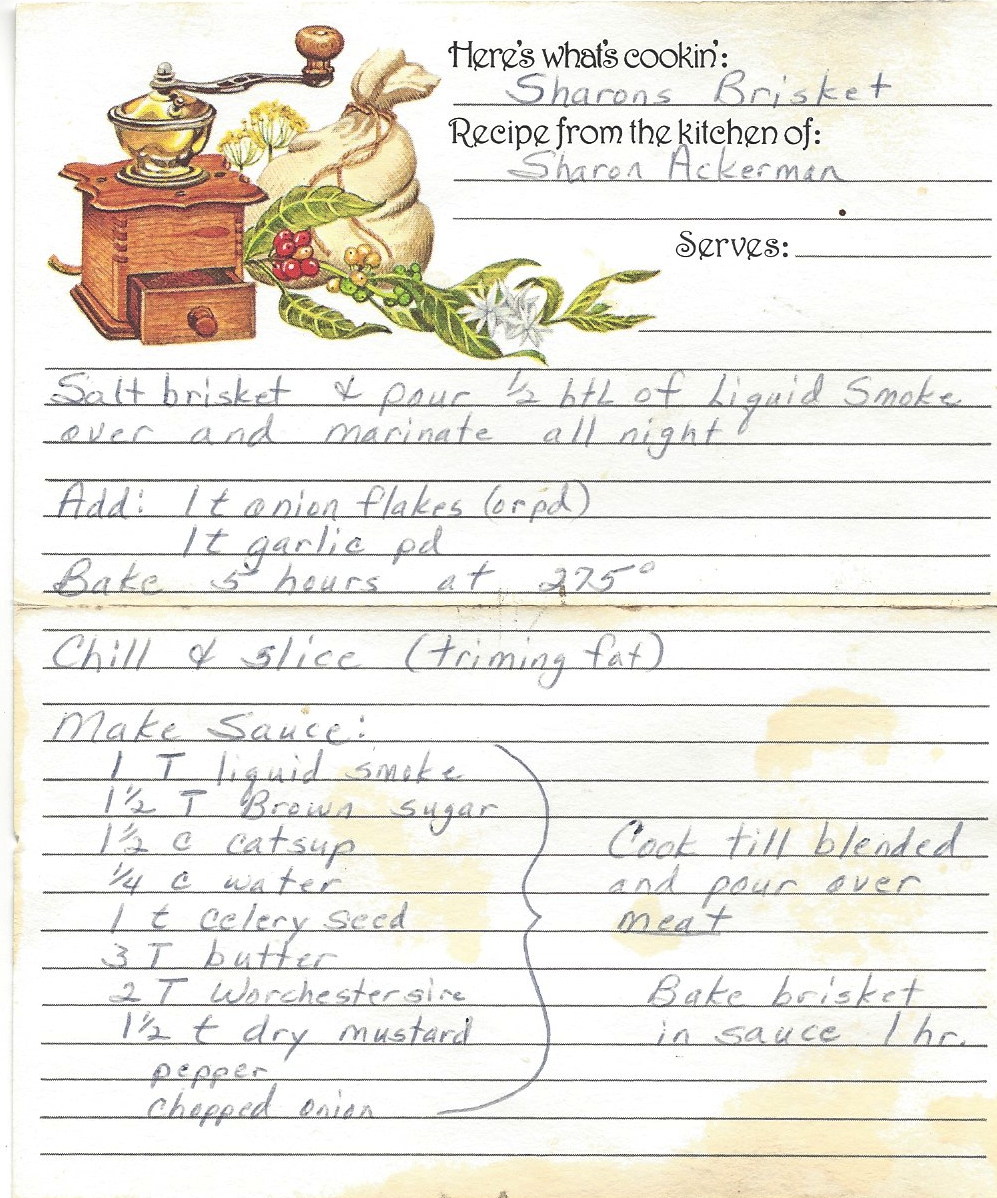 Here's what's cookin':
Sharons Brisket
Recipe from the kitchen of:
Sharon Ackerman
Serves:
Salt brisket & pour 1/2 btl of Liquid Smoke
over and marinate all night
Add: 1 t onion flakes (or pd)
1 t garlic pd
Bake 5 hours at 275°
Chill & slice (triming fat)
Make Sauce:
1 T liquid smoke
1 1/2 T Brown sugar
1 1/2 c catsup
1/4 c water
1 t celery seed
3 T butter
2 T Worchestersire
1 1/2 t dry mustard
pepper
chopped onion
Cook till blended
and pour over
meat
Bake brisket
in sauce 1 hr.